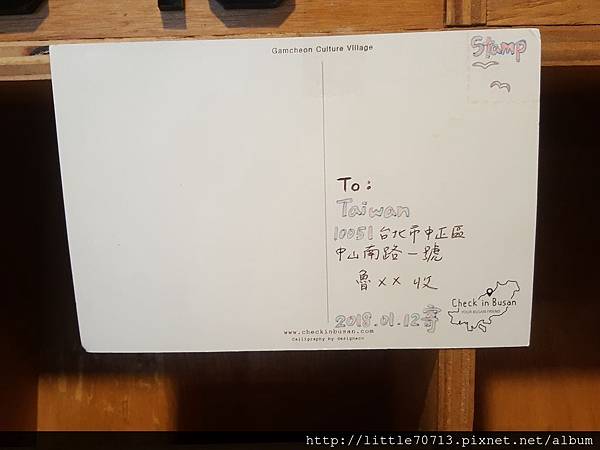 Gamcheon Culture Village
Stamp
To:
Taiwan
10051 台北市中正區
中山南路一號
魯 x x 收
2018.01.12寄
Check in Busan
YOUR BUSAN FRIEND
www.checkinbusan.com
Calligraphy by designeco
http://little70713.pixnet.net/album